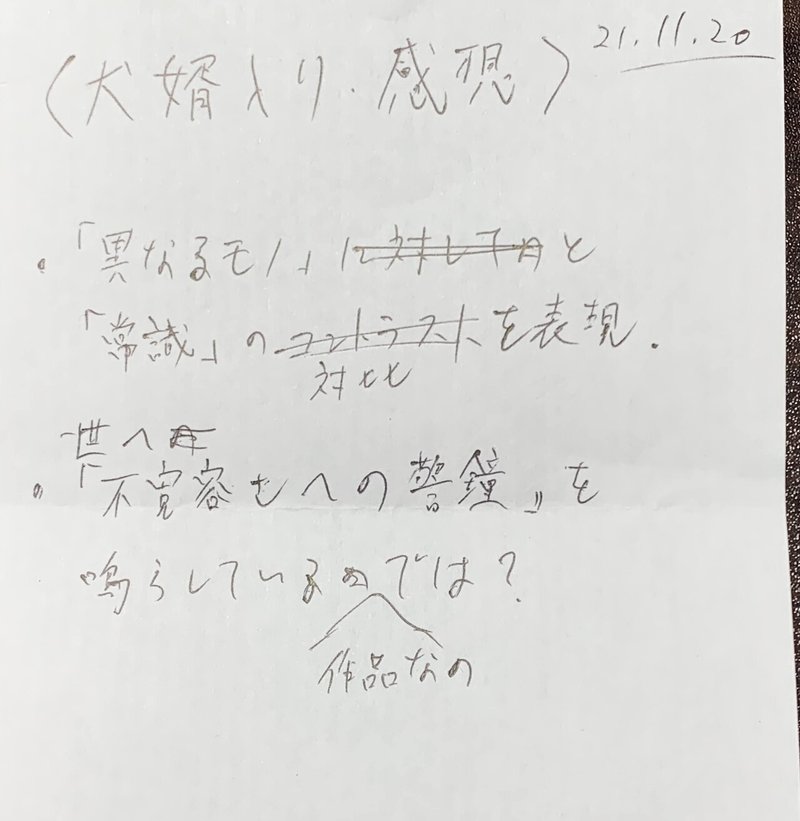 21.11.20
〈犬婿入り・感想〉
・「異なるモノ」に対してのと
「常識」のコントラストを表現.
対比
世へ
・「不寛容さへの警鐘」を
鳴らしているのでは?
作品なの